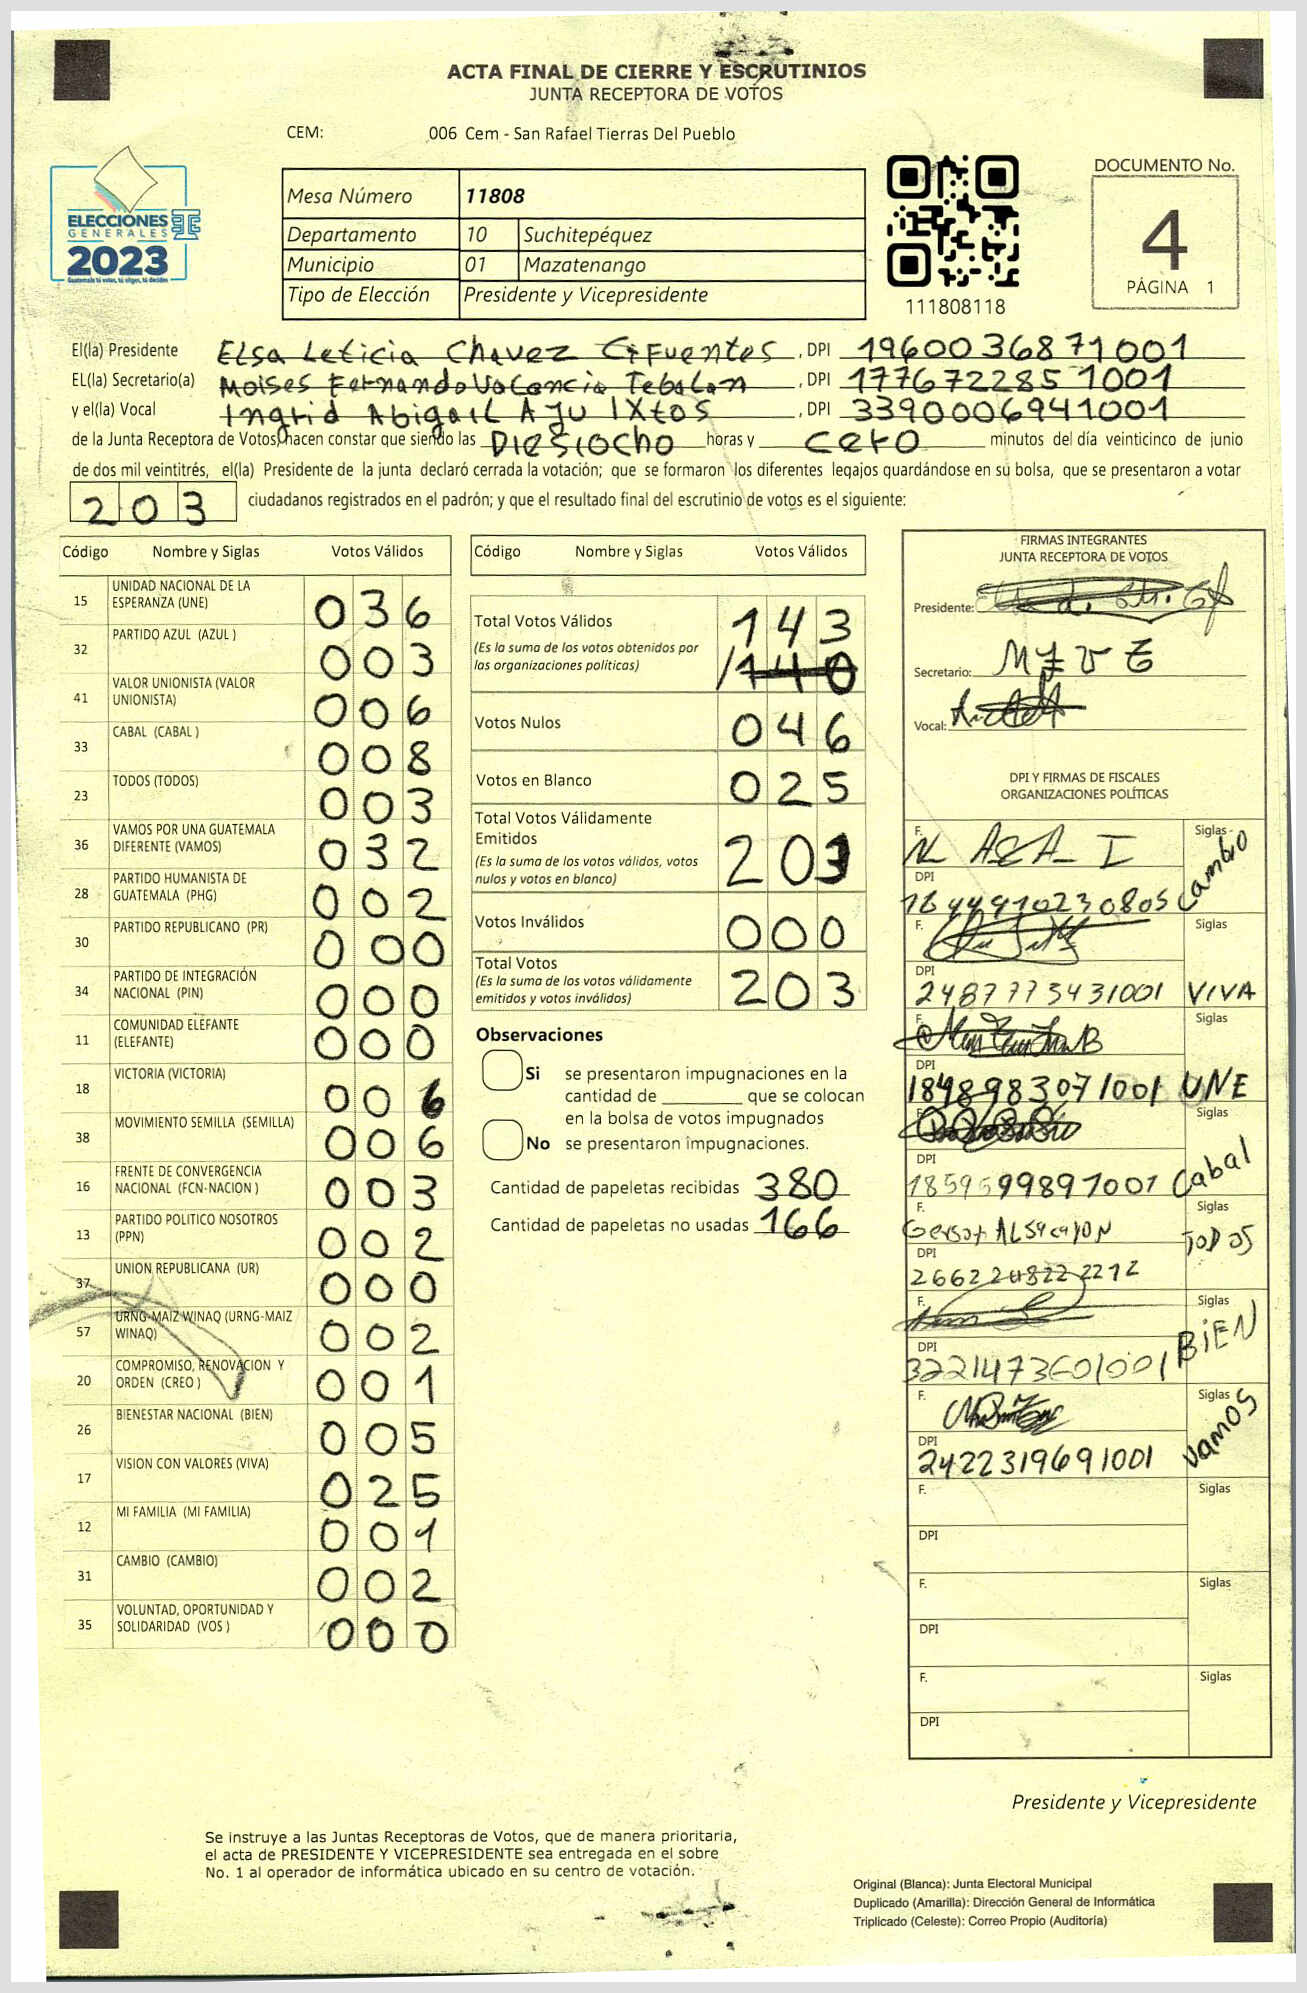 ACTA FINAL DE CIERRE Y ESCRUTINIOS
JUNTA RECEPTORA DE VOTOS
CEM: 006 Cem - San Rafael Tierras Del Pueblo
ELECCIONES
GENERALES
2023
Mesa Número 11808
Departamento 10 Suchitepéquez
Municipio 01 Mazatenango
Tipo de Elección Presidente y Vicepresidente
111808118
DOCUMENTO No.
4
PÁGINA 1
El(la) Presidente Elsa Leticia Chavez Cifuentes, DPI 1960036871001
EL(la) Secretario(a) Moises Fernando Valencia Tebalan, DPI 1776722851001
y el(la) Vocal Ingrid Abigail Aju Ixtos, DPI 3390006941001
de la Junta Receptora de Votos, hacen constar que siendo las Diesiocho horas y cero minutos del día veinticinco de junio
de dos mil veintitrés, el(la) Presidente de la junta declaró cerrada la votación; que se formaron los diferentes legajos quardándose en su bolsa, que se presentaron a votar
203 ciudadanos registrados en el padrón; y que el resultado final del escrutinio de votos es el siguiente:
Código Nombre y Siglas Votos Válidos
15 UNIDAD NACIONAL DE LA ESPERANZA (UNE) 036
32 PARTIDO AZUL (AZUL ) 003
41 VALOR UNIONISTA (VALOR UNIONISTA) 006
33 CABAL (CABAL ) 008
23 TODOS (TODOS) 003
36 VAMOS POR UNA GUATEMALA DIFERENTE (VAMOS) 032
28 PARTIDO HUMANISTA DE GUATEMALA (PHG) 002
30 PARTIDO REPUBLICANO (PR) 000
34 PARTIDO DE INTEGRACIÓN NACIONAL (PIN) 000
11 COMUNIDAD ELEFANTE (ELEFANTE) 000
18 VICTORIA (VICTORIA) 006
38 MOVIMIENTO SEMILLA (SEMILLA) 006
16 FRENTE DE CONVERGENCIA NACIONAL (FCN-NACION ) 003
13 PARTIDO POLITICO NOSOTROS (PPN) 002
37 UNION REPUBLICANA (UR) 000
57 URNG-MAIZ WINAQ (URNG-MAIZ WINAQ) 002
20 COMPROMISO, RENOVACION Y ORDEN (CREO ) 001
26 BIENESTAR NACIONAL (BIEN) 005
17 VISION CON VALORES (VIVA) 025
12 MI FAMILIA (MI FAMILIA) 001
31 CAMBIO (CAMBIO) 002
35 VOLUNTAD, OPORTUNIDAD Y SOLIDARIDAD (VOS ) 000
Código Nombre y Siglas Votos Válidos
Total Votos Válidos 143
(Es la suma de los votos obtenidos por
las organizaciones politicas) 140
Votos Nulos 046
Votos en Blanco 025
Total Votos Válidamente
Emitidos 203
(Es la suma de los votos válidos, votos
nulos y votos en blanco)
Votos Inválidos 000
Total Votos 203
(Es la suma de los votos válidamente
emitidos y votos inválidos)
Observaciones
Si se presentaron impugnaciones en la
cantidad de ________ que se colocan
en la bolsa de votos impugnados
No se presentaron impugnaciones.
Cantidad de papeletas recibidas 380
Cantidad de papeletas no usadas 166
FIRMAS INTEGRANTES
JUNTA RECEPTORA DE VOTOS
Presidente:
Secretario:
Vocal:
DPI Y FIRMAS DE FISCALES
ORGANIZACIONES POLÍTICAS
F. Siglas Cambio
DPI
F. Siglas VIVA
DPI 2487775431001
F. Siglas UNE
DPI 1848983071001
F. Siglas Cabal
DPI 1859599891001
F. Siglas TODOS
DPI
F. Siglas BIEN
DPI 3221473601001
F. Siglas Vamos
DPI 2422319691001
F. Siglas
DPI
F. Siglas
DPI
F. Siglas
DPI
Presidente y Vicepresidente
Se instruye a las Juntas Receptoras de Votos, que de manera prioritaria,
el acta de PRESIDENTE Y VICEPRESIDENTE sea entregada en el sobre
No. 1 al operador de informática ubicado en su centro de votación.
Original (Blanca): Junta Electoral Municipal
Duplicado (Amarilla): Dirección General de Informática
Triplicado (Celeste): Correo Propio (Auditoría)